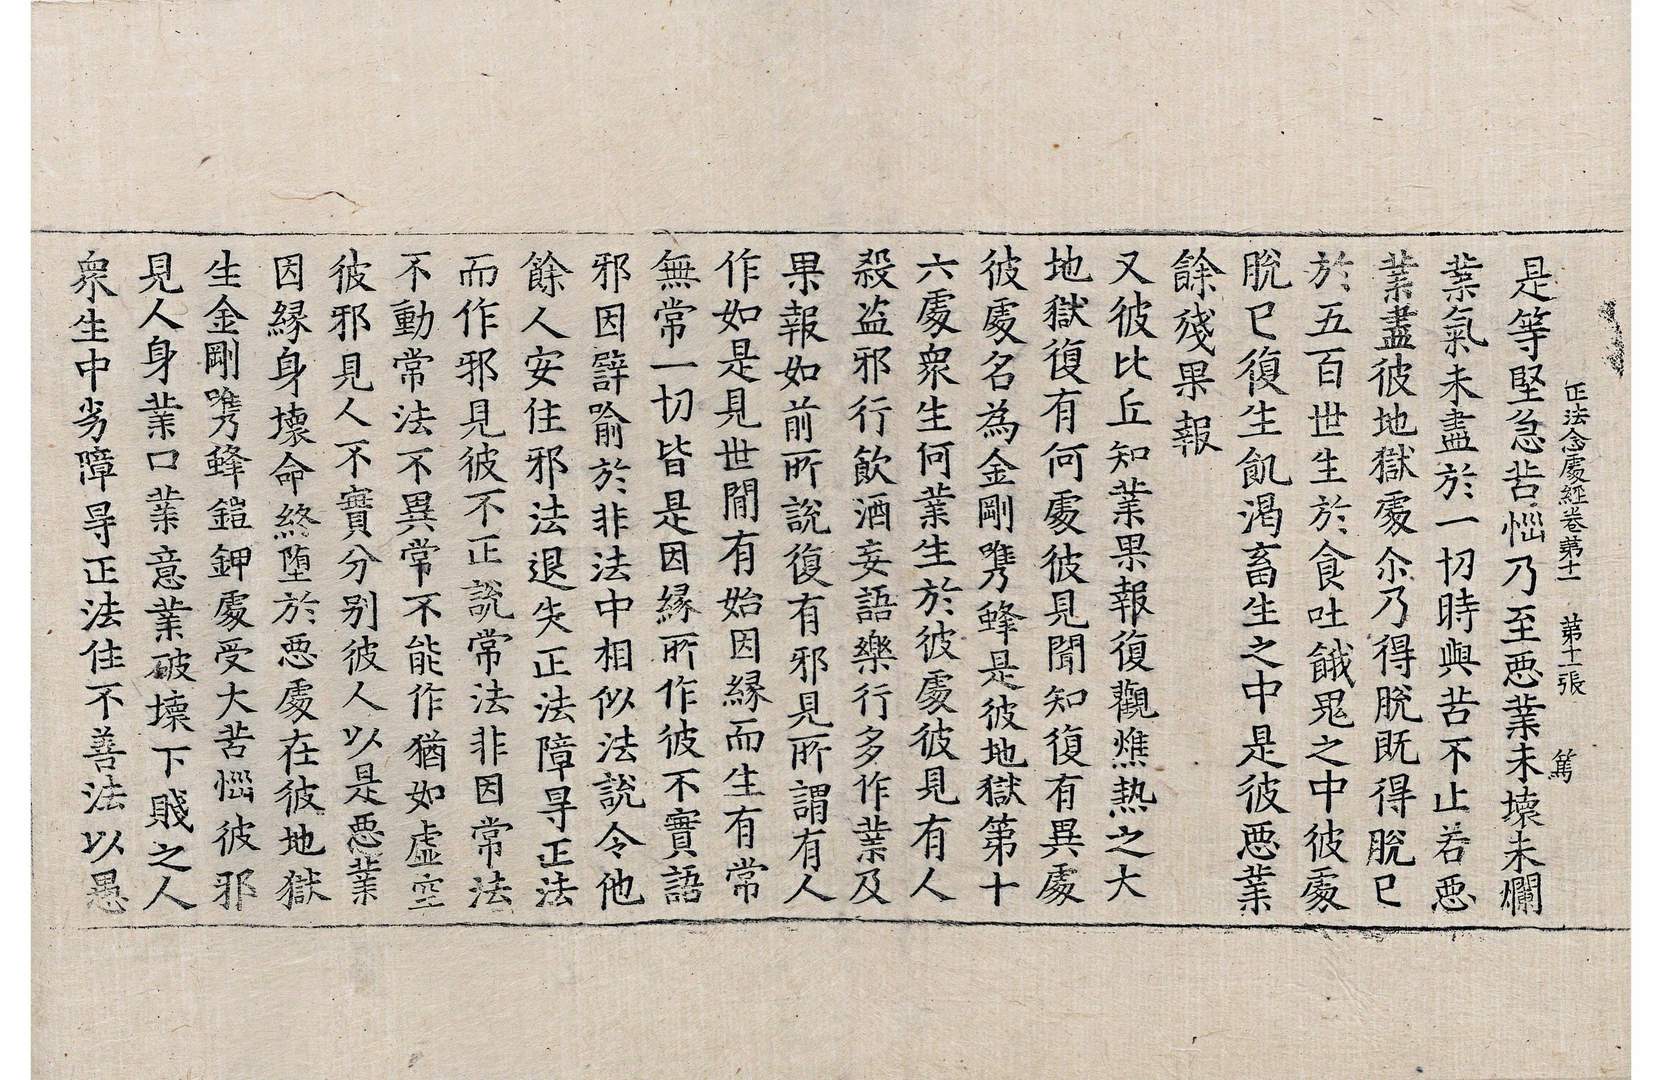 正法念處經卷第十一 第十一張 篤
是等堅急苦惱乃至惡業未壞未爛
業氣未盡於一切時與苦不止若惡
業盡彼地獄處尒乃得脫既得脫已
於五百世生於食吐餓鬼之中彼處
脫已復生飢渴畜生之中是彼惡業
餘殘果報
又彼比丘知業果報復觀燋熱之大
地獄復有何處彼見聞知復有異處
彼處名為金剛㗜蜂是彼地獄第十
六處衆生何業生於彼處彼見有人
殺盜邪行飲酒妄語樂行多作業及
果報如前所說復有邪見所謂有人
作如是見世間有始因緣而生有常
無常一切皆是因緣所作彼不實語
邪因譬喻於非法中相似法說令他
餘人安住邪法退失正法障㝵正法
而作邪見彼不正說常法非因常法
不動常法不異常不能作猶如虛空
彼邪見人不實分別彼人以是惡業
因緣身壞命終墮於惡處在彼地獄
生金剛㗜蜂鎧鉀處受大苦惱彼邪
見人身業口業意業破壞下賤之人
衆生中劣障㝵正法住不善法以愚